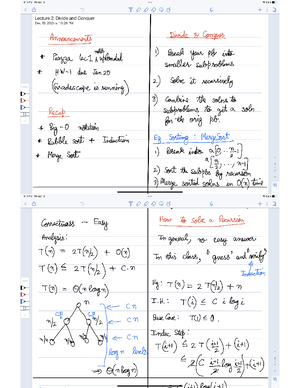 Lecture 2: Divide and Conquer
Announcements
* Piazza Lec 1 uploaded
* HW-1 due Jan 20
(Gradescope is running)
Recap
* Big-O notation
* Bubble sort + Induction
* Merge Sort
Divide & Conquer
1) Break your pb. into
smaller subproblems
2) Solve it recursively
3) Combine the solns to
subproblems to get a soln
for the orig pb.
Eg. Sorting: MergeSort
1) Break into
2) Sort the subpbs by recursion
3) Merge sorted solns in O(n) time
Correctness - Easy
Analysis:
T(n) = 2T(n/2) + O(n)
T(n) ≤ 2T(n/2) + C.n
T(n) = O(n log n)
n
Cn
n/2
n/2
Cn
Cn
log n levels
⇒ O(n log n)
How to solve a Recursion
In general, no easy answer
In this class, "guess and verify"
Induction
Eg: T(n) = 2T(n/2) + n
I.H: T(i) ≤ C i log i
Base Case: T(1) ≤ 0.
Induc Step:
T(i+1) ≤ 2T((i+1)/2) + (i+1)